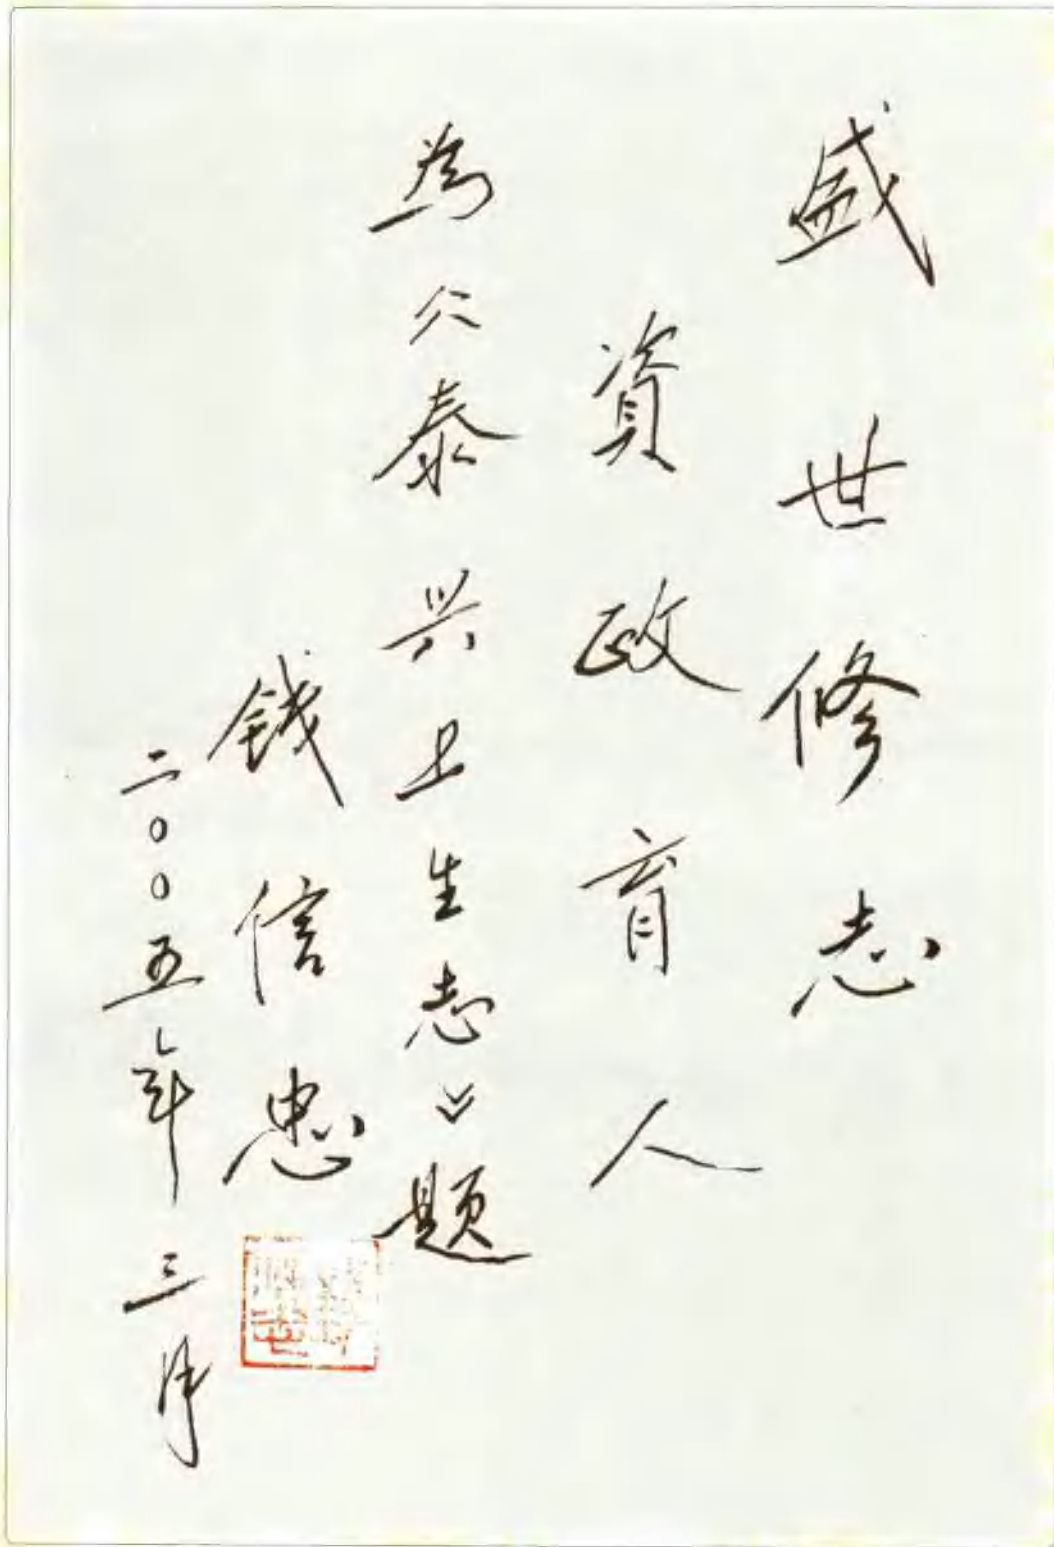 盛世修志
資政育人
為《泰兴卫生志》题
钱信忠
二〇〇五年三月